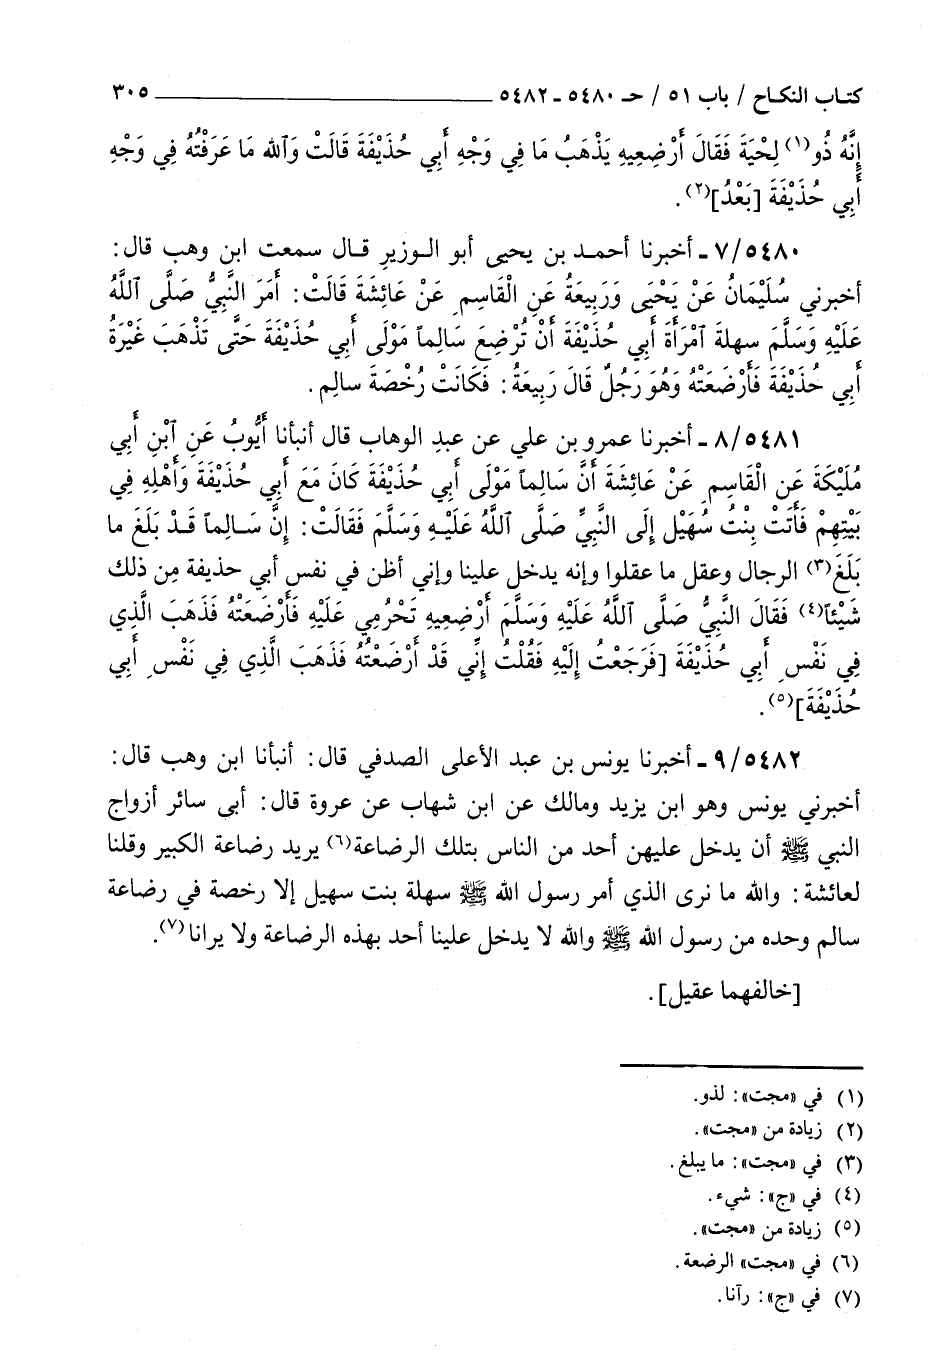 كتاب النكاح / باب ٥١ / حـ ٥٤٨٠ ـ ٥٤٨٢ ــــــــــــــــــــ ٣٠٥
إِنَّهُ ذُو(١) لِحْيَةَ فَقَالَ أَرْضِعِيهِ يَذْهَبُ مَا فِي وَجْهِ أَبِي حُذَيْفَةَ قَالَتْ وَٱلله مَا عَرَفْتُهُ فِي وَجْهِ
أَبِي حُذَيْفَةَ [بَعْدُ](٢).
٧/٥٤٨٠ ـ أخبرنا أحمد بن يحيى أبو الوزيرِ قال سمعت ابن وهب قال:
أخبرني سُلَيْمَانُ عَنْ يَحْيَى وَرَبِيعَةُ عَنِ الْقَاسِمِ عَنْ عَائِشَةَ قَالَتْ: أَمَرَ النَّبِيُّ صَلَّى ٱللَّهُ
عَلَيْهِ وَسَلَّمَ سهلةَ ٱمْرَأَةَ أَبِي حُذَيْفَةَ أَنْ تُرْضِعَ سَالِماً مَوْلَى أَبِي حُذَيْفَةَ حَتَّى تَذْهَبَ غَيْرَةُ
أَبِي حُذَيْفَةَ فَأَرْضَعَتْهُ وَهُوَ رَجُلٌ قَالَ رَبِيعَةُ: فَكَانَتْ رُخْصَةَ سالِم.
٨/٥٤٨١ ـ أخبرنا عمرو بن علي عن عبدِ الوهاب قال أنبأنا أَيُّوبُ عَنِ ٱبْنِ أَبِي
مُلَيْكَةَ عَنِ الْقَاسِمِ عَنْ عَائِشَةَ أَنَّ سَالِماً مَوْلَى أَبِي حُذَيْفَةَ كَانَ مَعَ أَبِي حُذَيْفَةَ وَأَهْلِهِ فِي
بَيْتِهِمْ فَأَتَتْ بِنْتُ سُهَيْلٍ إِلَى النَّبِيِّ صَلَّى ٱللَّهُ عَلَيْهِ وَسَلَّمَ فَقَالَتْ: إِنَّ سَالِماً قَدْ بَلَغَ ما
بَلَغَ(٣) الرجال وعقل ما عقلوا وإنه يدخل علينا وإني أظن في نفس أبي حذيفة مِن ذلك
شَيْئاً(٤) فَقَالَ النَّبِيُّ صَلَّى ٱللَّهُ عَلَيْهِ وَسَلَّمَ أَرْضِعِيهِ تَحْرُمِي عَلَيْهِ فَأَرْضَعَتْهُ فَذَهَبَ الَّذِي
فِي نَفْسِ أَبِي حُذَيْفَةَ [فَرَجَعْتُ إِلَيْهِ فَقُلْتُ إِنِّي قَدْ أَرْضَعْتُهُ فَذَهَبَ الَّذِي فِي نَفْسِ أَبِي
حُذَيْفَةَ](٥).
٩/٥٤٨٢ ـ أخبرنا يونس بن عبد الأعلى الصدفي قال: أنبأنا ابن وهب قال:
أخبرني يونس وهو ابن يزيد ومالك عن ابن شهاب عن عروة قال: أبى سائر أزواج
النبي ﷺ أن يدخل عليهن أحد من الناس بتلك الرضاعة(٦) يريد رضاعة الكبير وقلنا
لعائشة: والله ما نرى الذي أمر رسول الله ﷺ سهلة بنت سهيل إلا رخصة في رضاعة
سالم وحده من رسول الله ﷺ والله لا يدخل علينا أحد بهذه الرضاعة ولا يرانا(٧).
[خالفهما عقيل].
(١) في «مجت»: لذو.
(٢) زيادة من «مجت».
(٣) في «مجت»: ما يبلغ.
(٤) في «ج»: شيء.
(٥) زيادة من «مجت».
(٦) في «مجت» الرضعة.
(٧) في «ج»: رآنا.